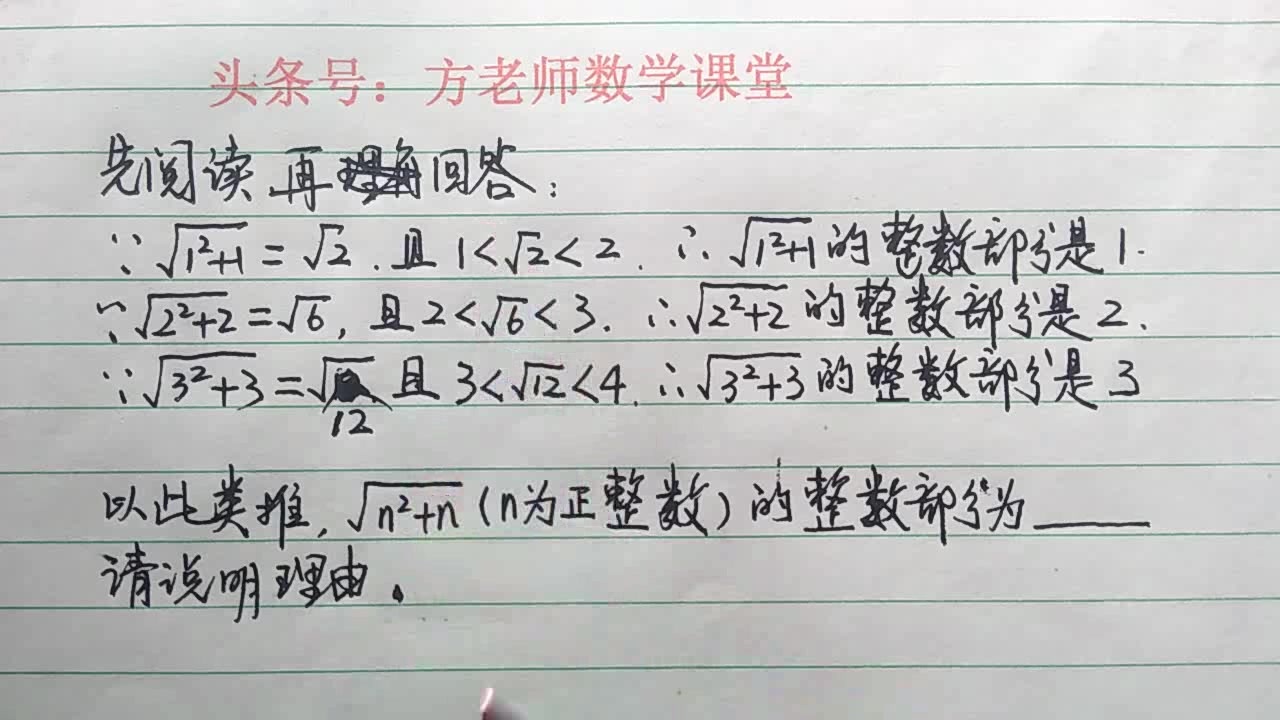 头条号：方老师数学课堂
先阅读,再回答：
∵√(1²+1)=√2.且1<√2<2.∴√(1²+1)的整数部分是1.
∵√(2²+2)=√6,且2<√6<3.∴√(2²+2)的整数部分是2.
∵√(3²+3)=√12且3<√12<4.∴√(3²+3)的整数部分是3
以此类推,√(n²+n)(n为正整数)的整数部分为____
请说明理由.